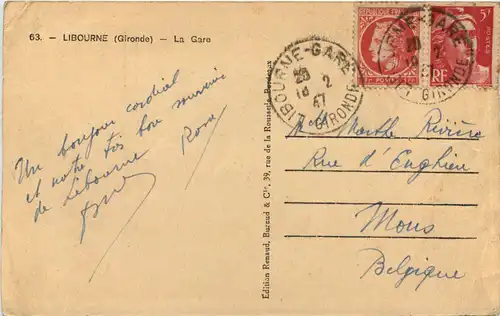 63. - LIBOURNE (Gironde) - La Gare
Un bonjour cordial
et notre très bon souvenir
de Libourne Rose
Édition Renaud, Buzaud & Cie, 39, rue de la Rousselle, Bordeaux
LIBOURNE-GARE
20
18 2
47
GIRONDE
5F
RF
POSTES
Marthe Rivière
Rue d'Enghien
Mons
Belgique